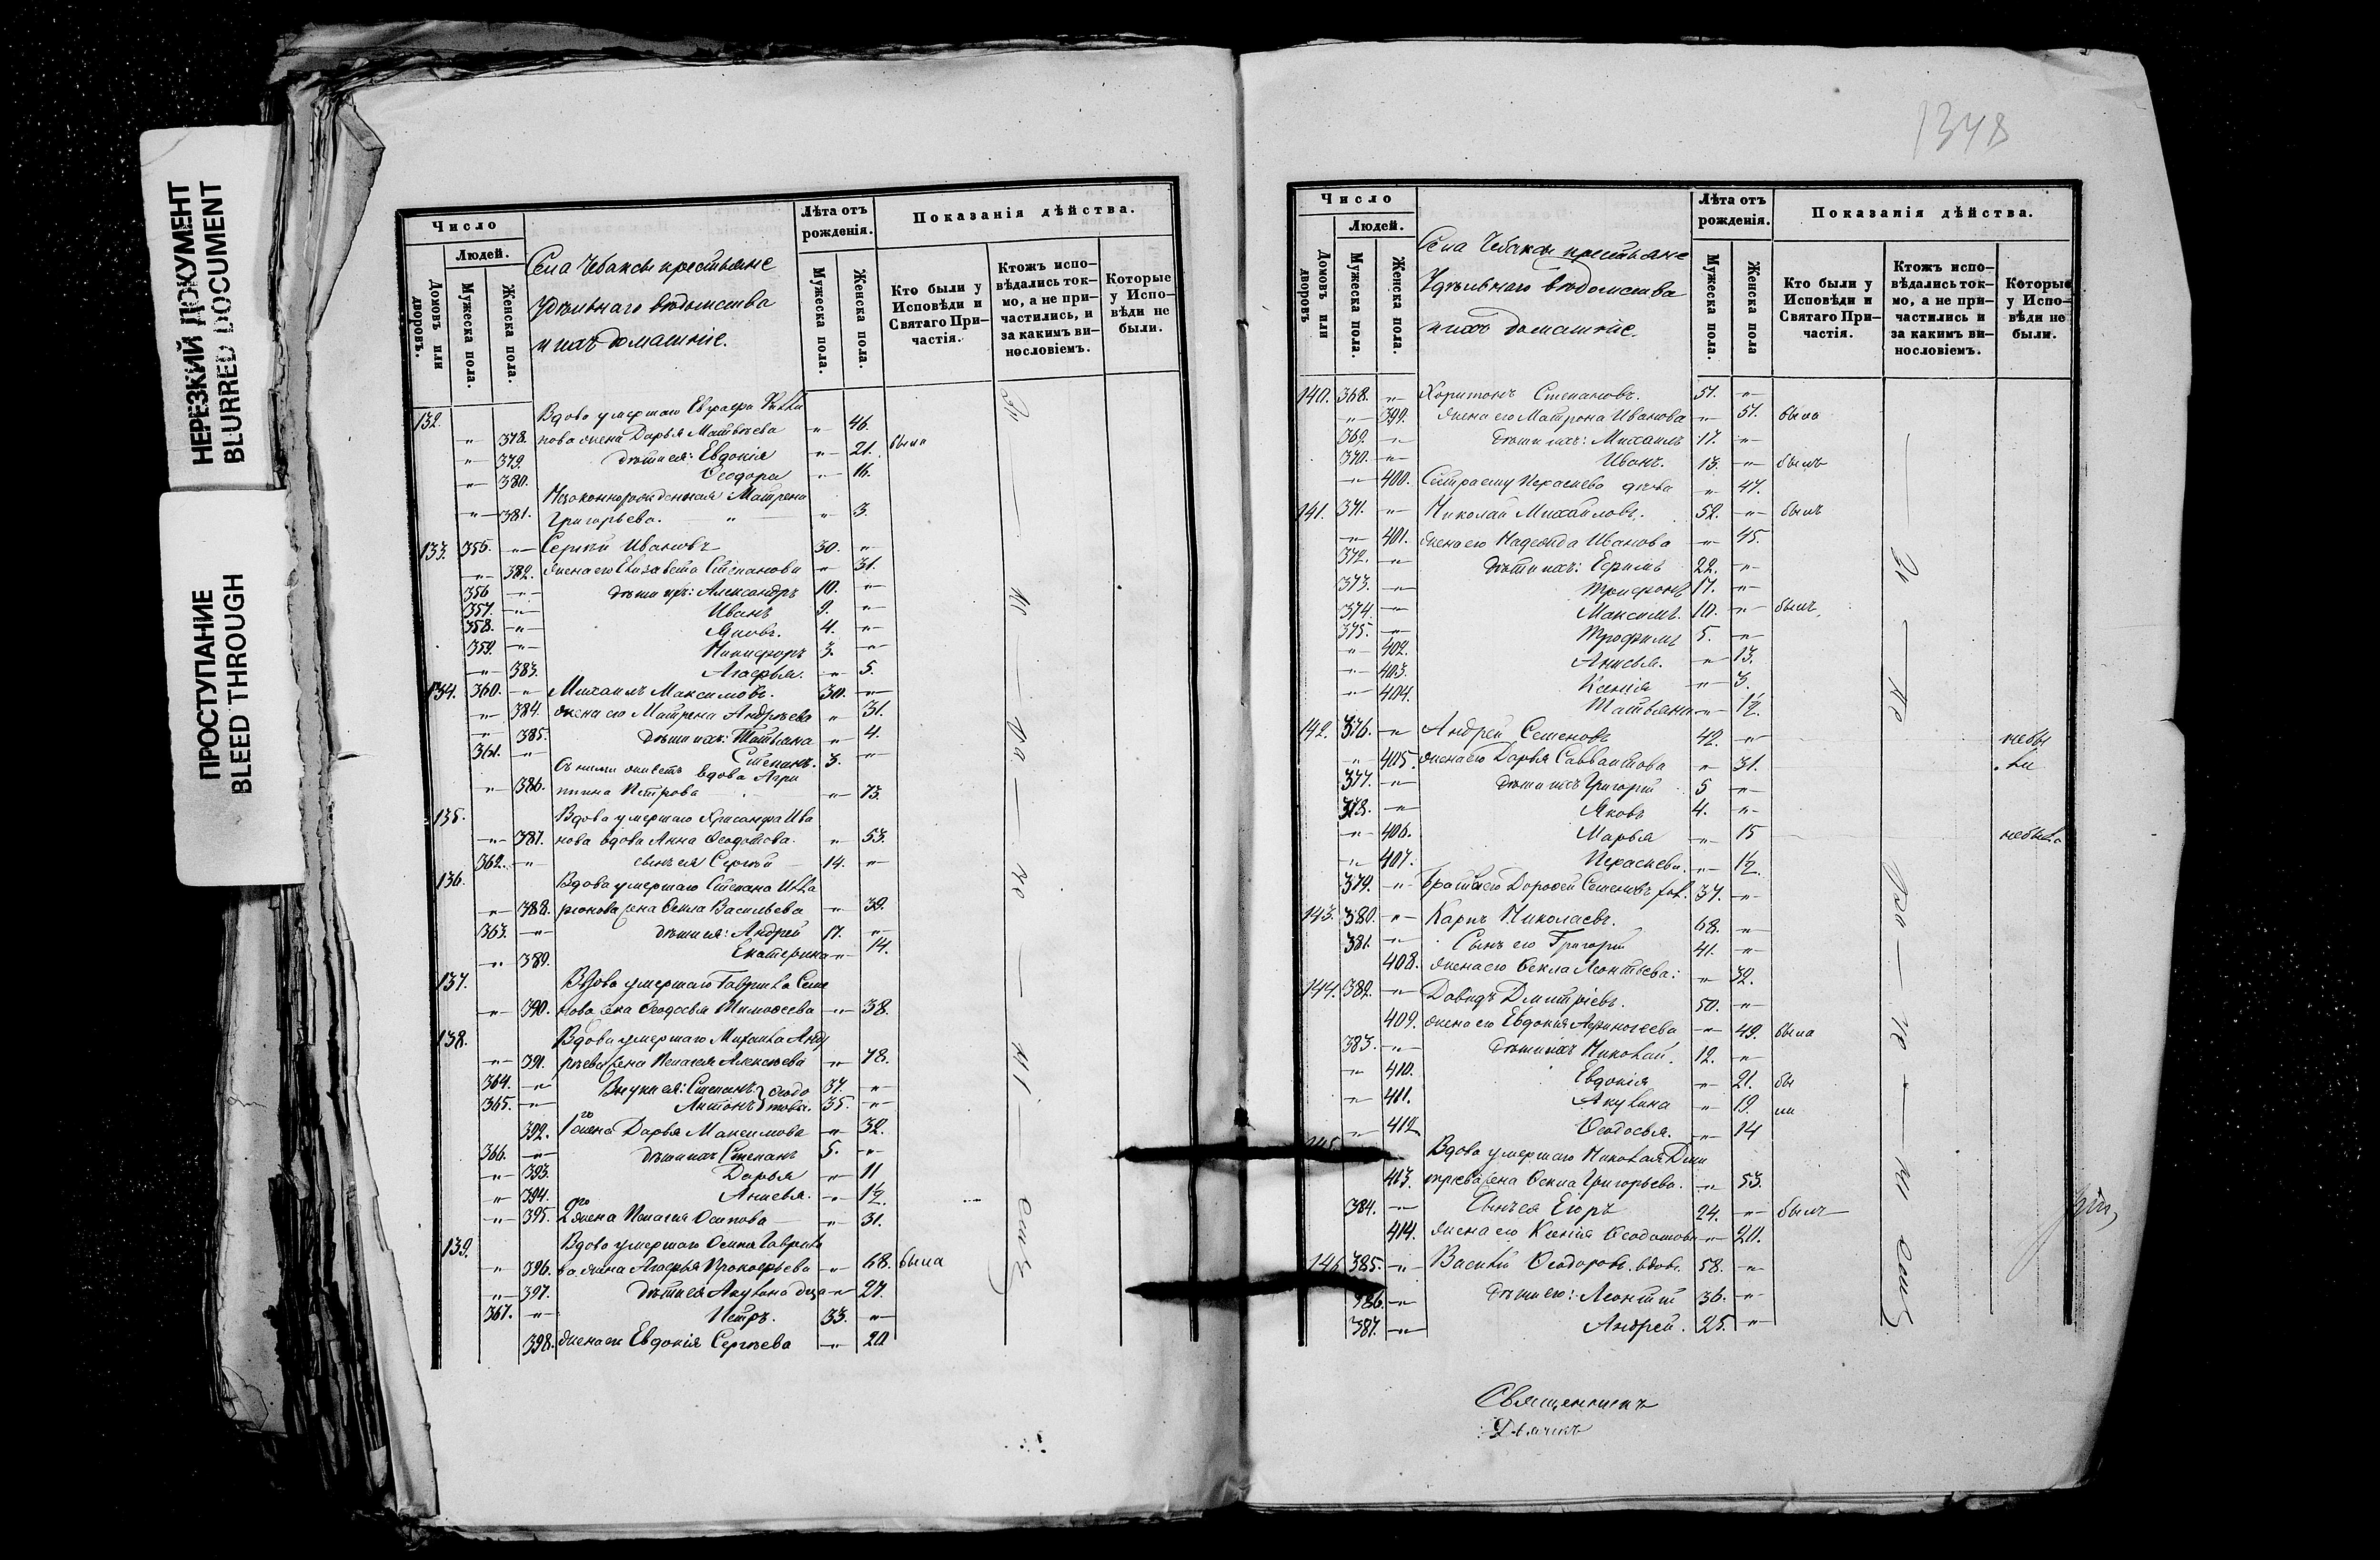 НЕРЕЗКИЙ ДОКУМЕНТ
BLURRED DOCUMENT
ПРОСТУПАНИЕ
BLEED THROUGH
Число
Людей.
Домовъ или дворовъ.
Мужеска пола.
Женска пола.
Села Чебаксы крестьяне
Удѣльнаго вѣдомства
и ихъ домашніе.
Лѣта отъ рожденія.
Мужеска пола.
Женска пола.
Показанія дѣйства.
Кто были у Исповѣди и Святаго При-частія.
Ктожъ испо-вѣдались ток-мо, а не при-частились, и за какимъ ви-нословіемъ.
Которые у Испо-вѣди не были.
132. Вдова умершаго
" 378. нова жена Дарья Матвѣева " 46.
" 379. дѣти ея: Евдокія " 21. были
" 380. Ѳеодора " 16.
Незаконнорожденная Матрена
" 381. Григорьева. " " 3.
133. 355. " Сергѣй Ивановъ 30. "
" 382. жена его Елизавета Степанова " 31.
356 " дѣти ихъ: Александръ 10. "
357. " Иванъ 9. "
358. " Яковъ. 4. "
359. " Никифоръ 3. "
" 383. Агафья. " 5.
134. 360. " Михаилъ Максимовъ. 30. "
" 384. жена его Матрена Андрѣева " 31.
" 385. дѣти ихъ: Татьяна " 4.
361. " Степанъ. 3. "
Съ ними живетъ вдова Агри
" 386. пина Петрова " 73.
135. Вдова умершаго Хрисанфа Ива
" 387. нова вдова Анна Ѳеодотова. " 53.
362. " сынъ ея Сергѣй 14. "
136. Вдова умершаго Степана Илла
" 388. ріонова жена Ѳекла Васильева " 39.
363. " дѣти ея: Андрей 17. "
" 389. Екатерина " 14.
137. Вдова умершаго Гаврила Семе
" 390. нова жена Ѳеодосья Тимоѳеева " 38.
138. Вдова умершаго Михаила Анд
" 391. рѣева жена Пелагея Алексѣева " 78.
364. " Внуки ея: Степанъ Ѳеодо 37. "
365. " Антонъ товы. 35. "
392. 1го жена Дарья Максимова " 32.
366. " дѣти ихъ Степанъ 5. "
" 393. Дарья " 11
" 394. Анисья. " 1½
" 395. 2го жена Пелагея Осипова " 31.
139. Вдова умершаго Осипа Гаврило
" 396. ва жена Агафья Прокофьева " 68. была
" 397. дѣти ея Акулина " 27.
367. " Петръ. 33. "
398. жена его Евдокія Сергѣева " 20
1348
Число
Людей.
Домовъ или дворовъ
Мужеска пола.
Женска пола.
Села Чебаксы крестьяне
Удѣльнаго вѣдомства
и ихъ домашніе.
Лѣта отъ рожденія.
Мужеска пола.
Женска пола
Показанія дѣйства.
Кто были у Исповѣди и Святаго При-частія.
Ктожъ испо-вѣдались ток-мо, а не при-частились и за какимъ ви-нословіемъ.
Которые у Испо-вѣди не были.
140. 368. " Харитонъ Степановъ. 51. "
" 399. жена его Матрона Иванова " 51. была
369. " дѣти ихъ: Михаилъ 17. "
370. " Иванъ. 13. " былъ
" 400. Сестра ему Параскева дѣва " 47.
141. 371. " Николай Михайловъ. 52. " былъ
" 401. жена его Надежда Иванова " 45.
372. " дѣти ихъ: Ефимъ 22. "
373. " Трифонъ 17. "
374. " Максимъ. 10. " былъ
375. " Трофимъ 5. "
" 402. Анисья. " 13.
" 403. Ксенія " 3.
" 404. Татьяна " 1½.
142. 376. " Андрей Семеновъ 42. " небы
" 405. жена его Дарья Савватѣева " 31. ли
377. " дѣти ихъ Григорій 5 "
378. " Яковъ 4. "
" 406. Марья " 15 небыла
" 407. Параскева. " 1½.
379. " Братъ его Дороѳей Семеновъ 37. "
143. 380. " Карпъ Николаевъ. 68. "
381. " Сынъ его Григорій 41. "
408. жена его Ѳекла Леонтьева: " 32.
144. 382. " Давидъ Дмитріевъ. 50. "
409. жена его Евдокія " 49. была
383. " дѣти ихъ Николай. 12. "
" 410. Евдокія " 21. бы
" 411. Акулина " 19. ли
" 412 Ѳеодосья. " 14
145 Вдова умершаго Николая Дми
413. тріева жена Ѳекла Григорьева. " 53.
384. " Сынъ ея Егоръ 24. " былъ
414. жена его Ксенія Ѳеодотова " 20.
146 385. " Василій Ѳеодоровъ. вдовъ. 58. "
386. " дѣти его: Леонтій 36. "
387. " Андрей. 25. "
Священникъ
Дьячекъ